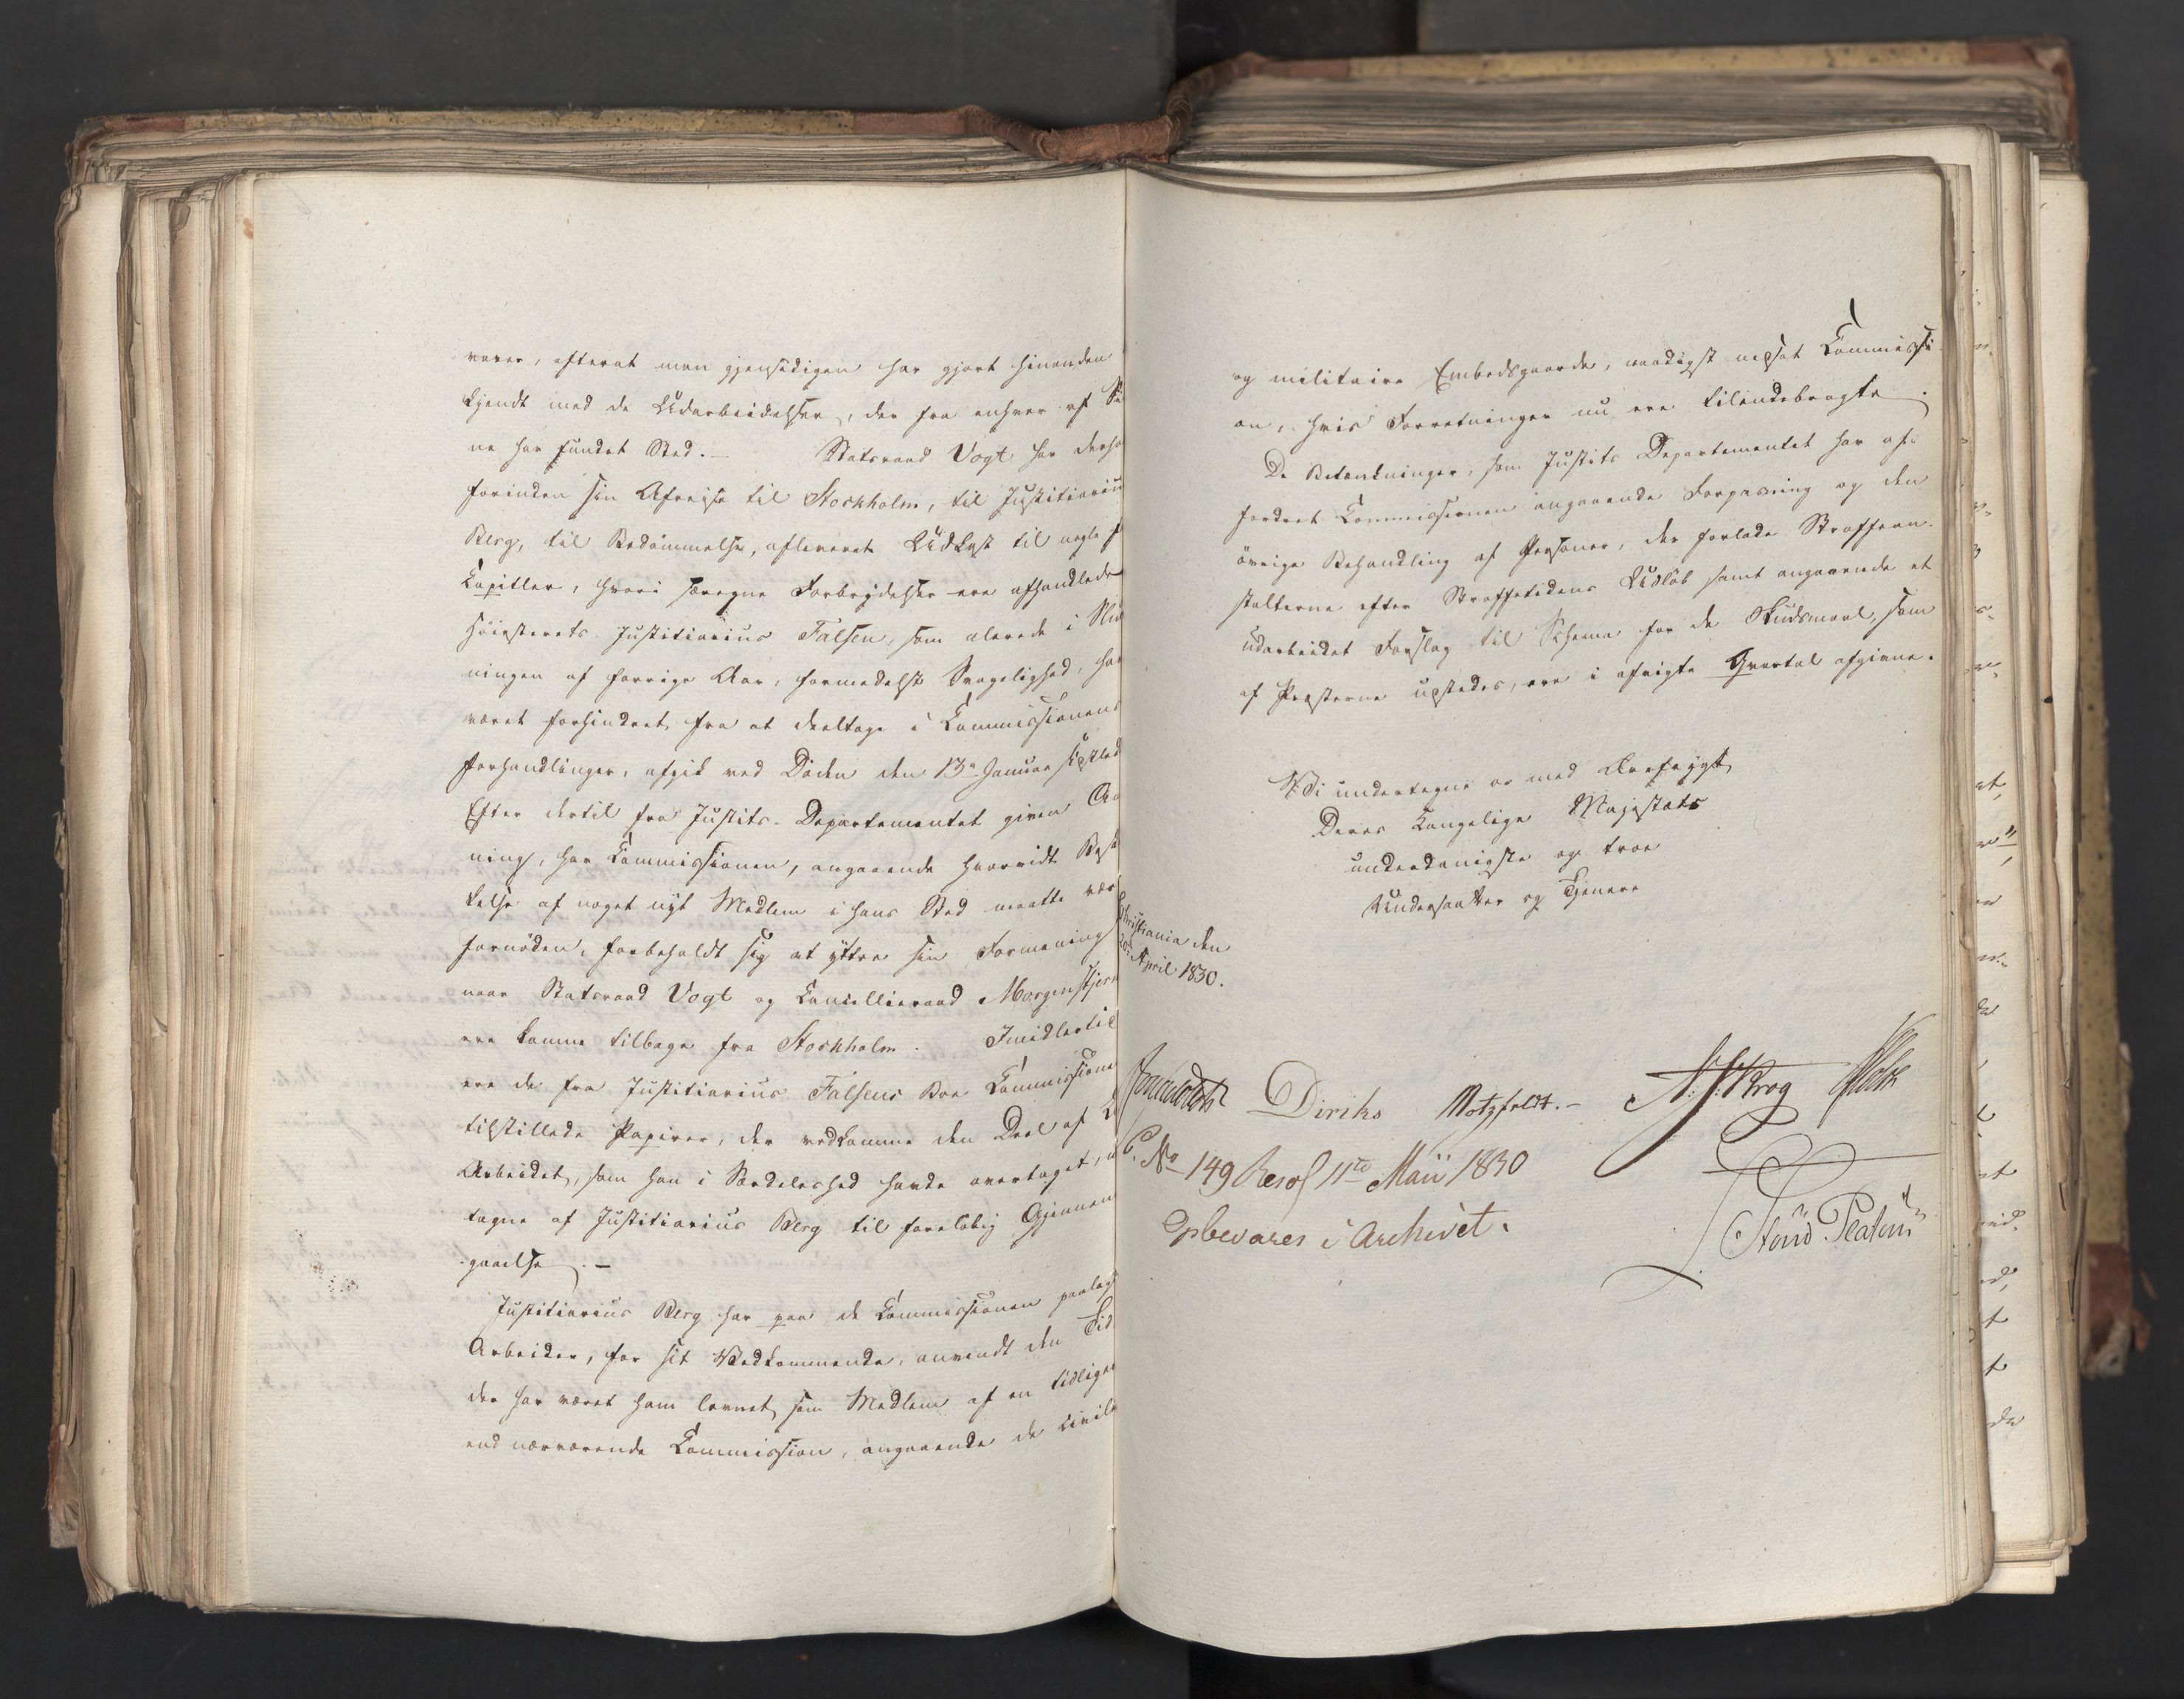 varer, efterat man gjensidigen har gjort hinanden
kjendt med de Udarbeidelser, der fra enhver af Si
ne har fundet Sted. — Statsraad Vogt har derho
forinden sin Afreise til Stockholm, til Justitiariu
Berg, til Bedømmelse, afleveret Udkast til nogle
Capitler, hvori særegne Forbrydelser ere afhandlede
Høiesterets Justitiarius Falsen, som alerede i Slu
ningen af forrige Aar, formedelst Svagelighed, har
været forhindret fra at deeltage i Commissionens
forhandlinger, afgik ved Døden den 13de Januar sidstled
Efter dertil fra Justits-Departementet given An
ning, har Commissionen, angaaende hvorvidt Besk
kelse af noget nyt Medlem i hans Sted maatte vær
fornøden, forbeholdt sig at yttre sin Formening
naar Statsraad Vogt og Cancellieraad Morgenstjern
ere komne tilbage fra Stockholm. Imidlertid
ere de fra Justitiarius Falsens Boe Commissionen
tilstillede Papirer, der vedkomme den Deel af
Arbeidet, som han i Særdeleshed havde overtaget,
tagne af Justitiarius Berg til foreløbig Gjennem
gaaelse. —
Justitiarius Berg har paa de Commissionen paalag
Arbeider, for sit Vedkommende, anvendt den Tid
der har været ham levnet som Medlem af en tidliger
end nærværende Commission, angaaende de civile
og militaire Embedsgaarde, naadigst nedsat Commissi-
on, hvis Forretninger nu ere tilendebragte.
De Betænkninger, som Justits Departementet har af-
fordret Commissionen angaaende Forpasning og den
øvrige Behandling af Personer, der forlade Straffean-
stalterne efter Straffetidens Udløb samt angaaende et
udarbeidet Forslag til Schema for de Skudsmaal, som
af Præsterne udstedes, ere i afvigte Qvartal afgivne.
Vi undertegne os med Ærefrygt
Deres Kongelige Majestæts
underdanigste og troe
Undersaatter og Tjenere
Christiania den
20de April 1830.
Diriks Motzfeldt. — Krog Holst
C. No 149 Resol 11te Maii 1830
Opbevares i Archivet.